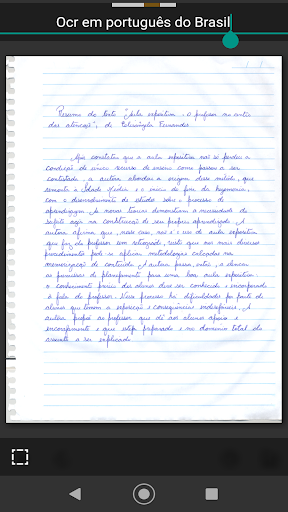 Ocr em português do Brasil
Resumo do texto "Aula expositiva: O professor no centro
das atenções", de Elisângela Fernandes
Após constatar que a aula expositiva não só perdeu a
condição de único recurso de ensino como passou a ser
contestada a autora abordou a origem desse método, que
remonta à Idade Média e o início do fim da hegemonia,
com o desenvolvimento de estudos sobre o processo de
aprendizagem. As novas teorias demonstram a necessidade do
sujeito agir na construção de seu próprio aprendizado. A
autora afirma que, nesse caso, não é o uso da aula expositiva
que faz do professor um retrógrado, visto que nos mais diversos
procedimentos pode-se aplicar metodologias calcadas na
memorização de conteúdo. A autora passa, então, a elencar
as premissas do planejamento para uma boa aula expositiva:
o conhecimento prévio dos alunos deve ser conhecido e incorporado
à fala do professor. Nesse processo há dificuldades por parte de
alunos que temem a exposição e consequências indesejáveis. A
autora propõe ao professor que dê aos alunos apoio e
encorajamento e que esteja preparado e no domínio total do
assunto a ser explicado.